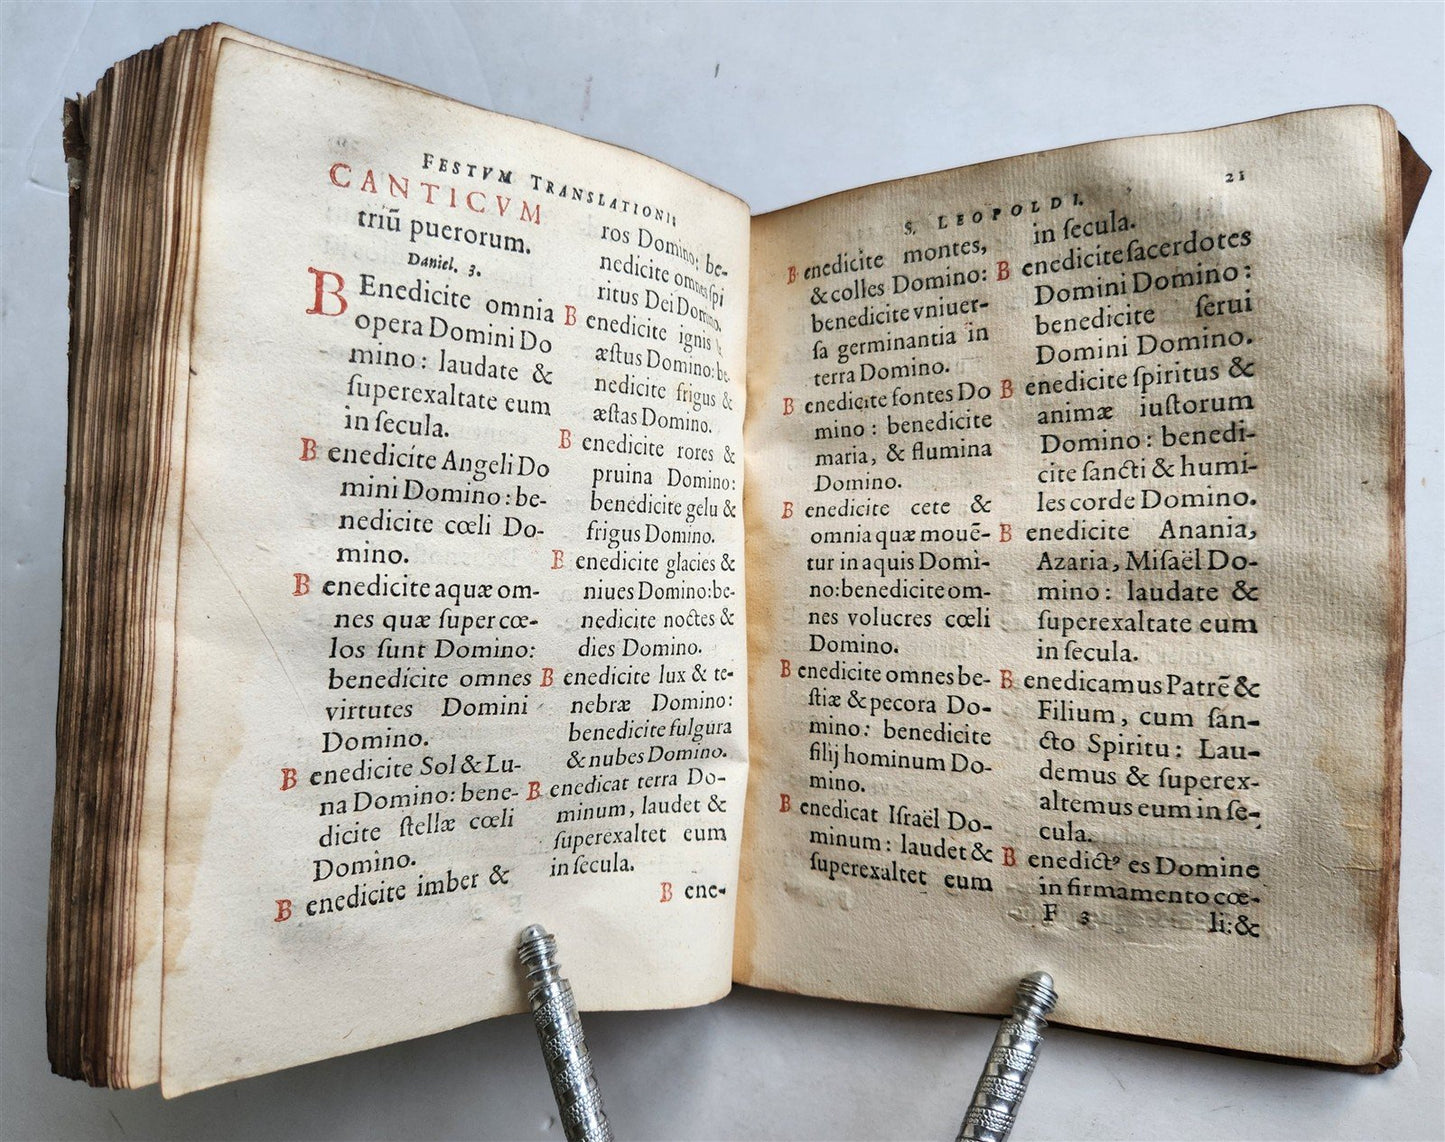 FESTVM TRANSLATIONIS
CANTICVM
triũ puerorum.
Daniel. 3.
BEnedicite omnia
opera Domini Do
mino: laudate &
ſuperexaltate eum
in ſecula.
Benedicite Angeli Do
mini Domino: be-
nedicite cœli Do-
mino.
Benedicite aquæ om-
nes quæ ſuper cœ-
los ſunt Domino:
benedicite omnes
virtutes Domini
Domino.
Benedicite Sol & Lu-
na Domino: bene-
dicite ſtellæ cœli
Domino.
Benedicite imber &
ros Domino: be-
nedicite omnes ſpi
ritus Dei Domino.
Benedicite ignis &
æſtus Domino: be-
nedicite frigus &
æſtas Domino.
Benedicite rores &
pruina Domino:
benedicite gelu &
frigus Domino.
Benedicite glacies &
niues Domino: be-
nedicite noctes &
dies Domino.
Benedicite lux & te-
nebræ Domino:
benedicite fulgura
& nubes Domino.
Benedicat terra Do-
minum, laudet &
ſuperexaltet eum
in ſecula.
Bene-
S. LEOPOLDI. 21
Benedicite montes,
& colles Domino:
benedicite vniuer-
ſa germinantia in
terra Domino.
Benedicite fontes Do
mino: benedicite
maria, & flumina
Domino.
Benedicite cete &
omnia quæ mouẽ-
tur in aquis Domi-
no: benedicite om-
nes volucres cœli
Domino.
Benedicite omnes be-
ſtiæ & pecora Do-
mino: benedicite
filij hominum Do-
mino.
Benedicat Iſraël Do-
minum: laudet &
ſuperexaltet eum
in ſecula.
Benedicite ſacerdotes
Domini Domino:
benedicite ſerui
Domini Domino.
Benedicite ſpiritus &
animæ iuſtorum
Domino: benedi-
cite ſancti & humi-
les corde Domino.
Benedicite Anania,
Azaria, Miſaël Do-
mino: laudate &
ſuperexaltate eum
in ſecula.
Benedicamus Patrẽ &
Filium, cum ſan-
cto Spiritu: Lau-
demus & ſuperex-
altemus eum in ſe-
cula.
Benedictꝰ es Domine
in firmamento cœ-
F 3 li: &